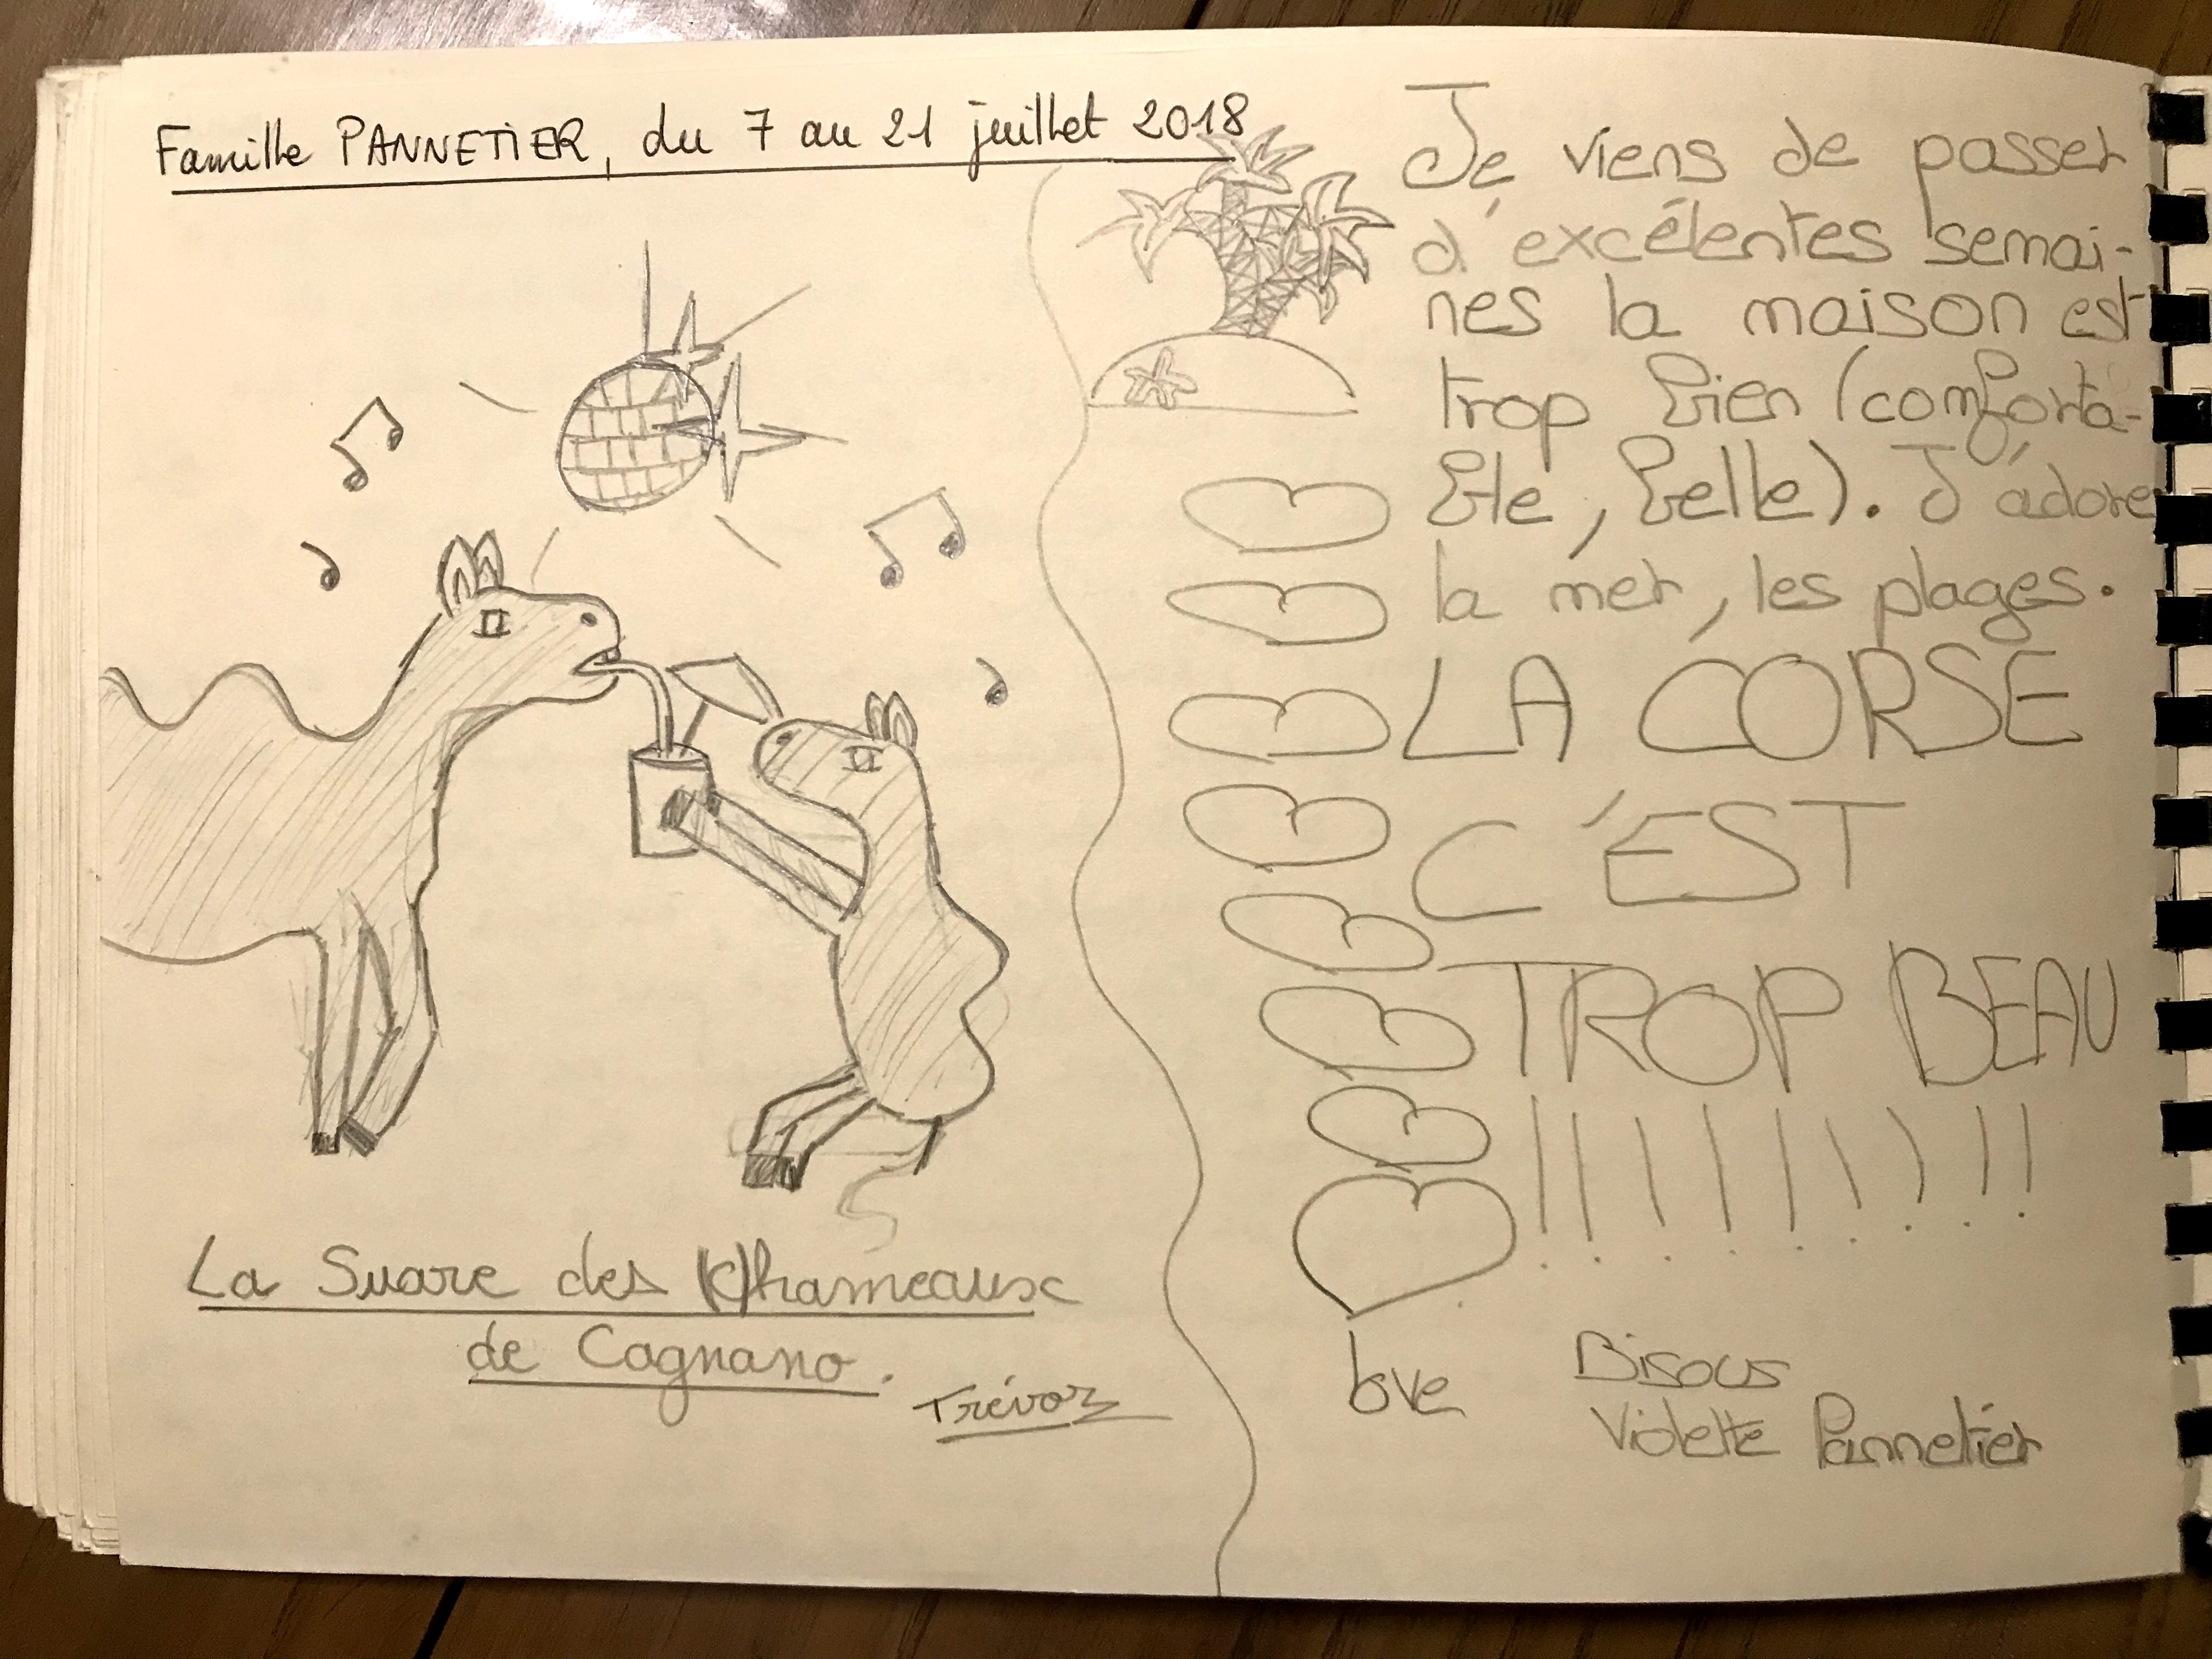 Famille PANNETIER, du 7 au 21 juillet 2018
La Suare des (K)hameaux
de Cagnano.
Trévor
Je viens de passer
d'excélentes semai-
nes la maison est
trop bien (comforta-
ble, belle). J'adore
la mer, les plages.
LA CORSE
C'EST
TROP BEAU
!!!!!!!!!
love
Bisous
Violette Pannetier